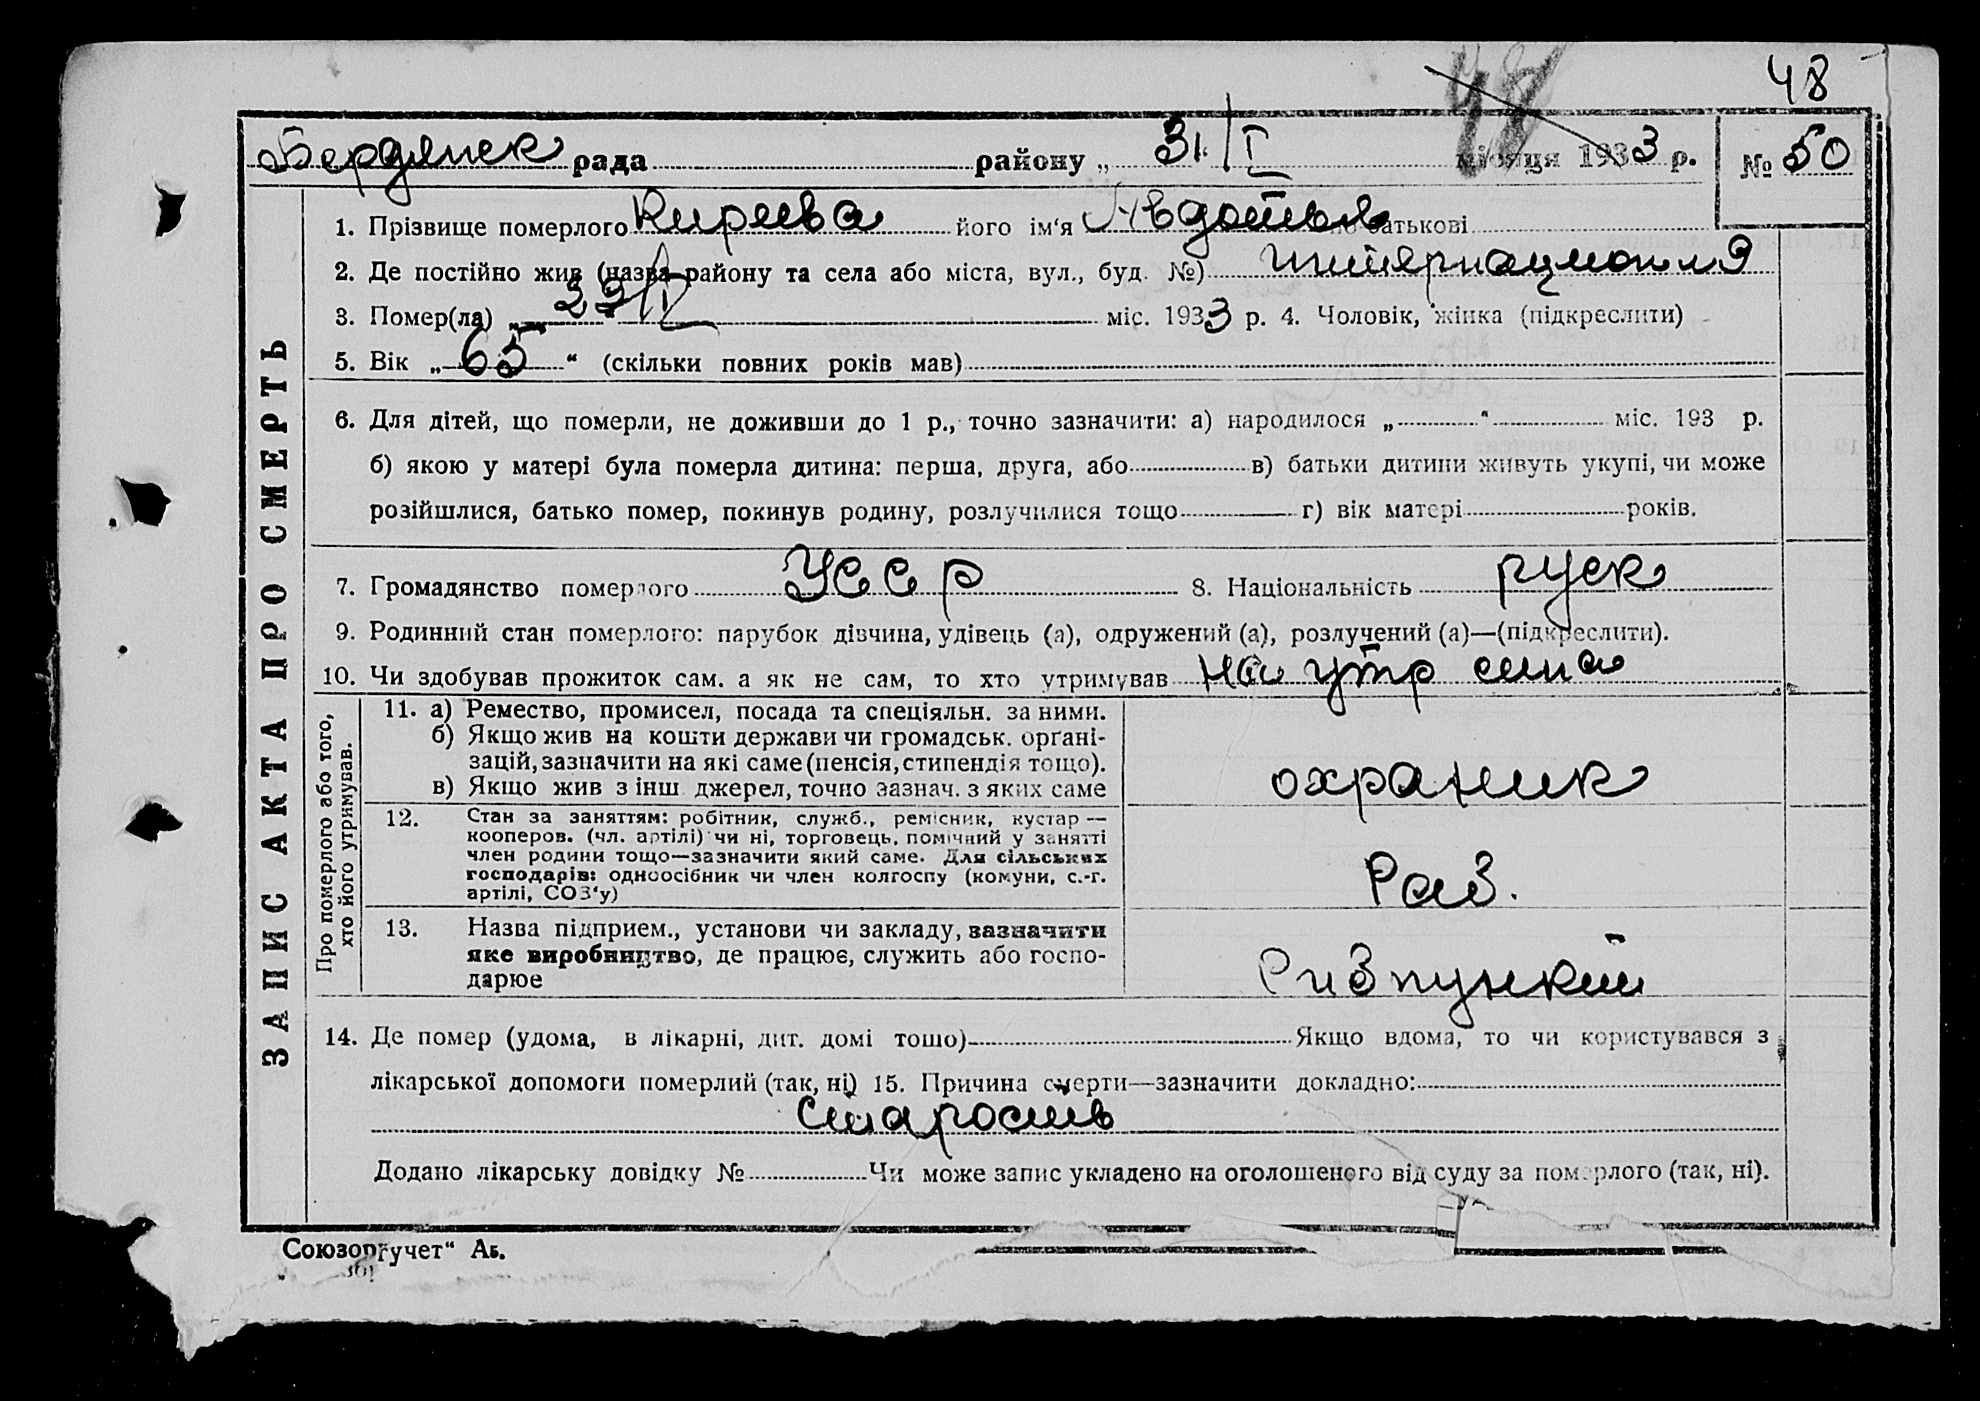 48
48
Бердянск рада района „ 31 “ I місяця 1933 р. № 50
ЗАПИС АКТА ПРО СМЕРТЬ
1. Прізвище померлого Киреева його ім‘я Авдотья по батькові
2. Де постійно жив (назва району та села або міста, вул., буд. №) интернационал 9
3. Помер(ла) „ 29 “ I міс. 1933 р. 4. Чоловік, жінка (підкреслити)
5. Вік „ 65 “ (скільки повних років мав)
6. Для дітей, що померли, не доживши до 1 р., точно зазначити: а) народилося „ “ міс. 193 р.
б) якою у матері була померла дитина: перша, друга, або в) батьки дитини живуть укупі, чи може
розійшлися, батько помер, покинув родину, розлучилися тощо г) вік матері років.
7. Громадянство померлого УССР 8. Національність руск
9. Родинний стан померлого: парубок дівчина, удівець (а), одружений (а), розлучений (а)—(підкреслити).
10. Чи здобував прожиток сам. а як не сам, то хто утримував на утр сина
Про померлого або того, хто його утримував.
11. а) Ремество, промисел, посада та спеціяльн. за ними.
б) Якщо жив на кошти держави чи громадськ. органі-
зацій, зазначити на які саме (пенсія, стипендія тощо).
в) Якщо жив з інш джерел, точно зазнач. з яких саме
охраник
12. Стан за заняттям: робітник, служб., ремісник, кустар —
кооперов. (чл. артілі) чи ні, торговець, помічний у занятті
член родини тощо—зазначити який саме. Для сільських
господарів: одноосібник чи член колгоспу (комуни, с.-г.
артілі, СОЗ‘у)
Раб.
13. Назва підприєм., установи чи закладу, зазначити
яке виробництво, де працює, служить або госпо-
дарює
14. Де помер (удома, в лікарні, дит. домі тошо) Якщо вдома, то чи користувався з
лікарської допомоги померлий (так, ні) 15. Причина смерти—зазначити докладно:
Старость
Додано лікарську довідку № Чи може запис укладено на оголошеного від суду за померлого (так, ні).
Союзоргучет“ Аб.